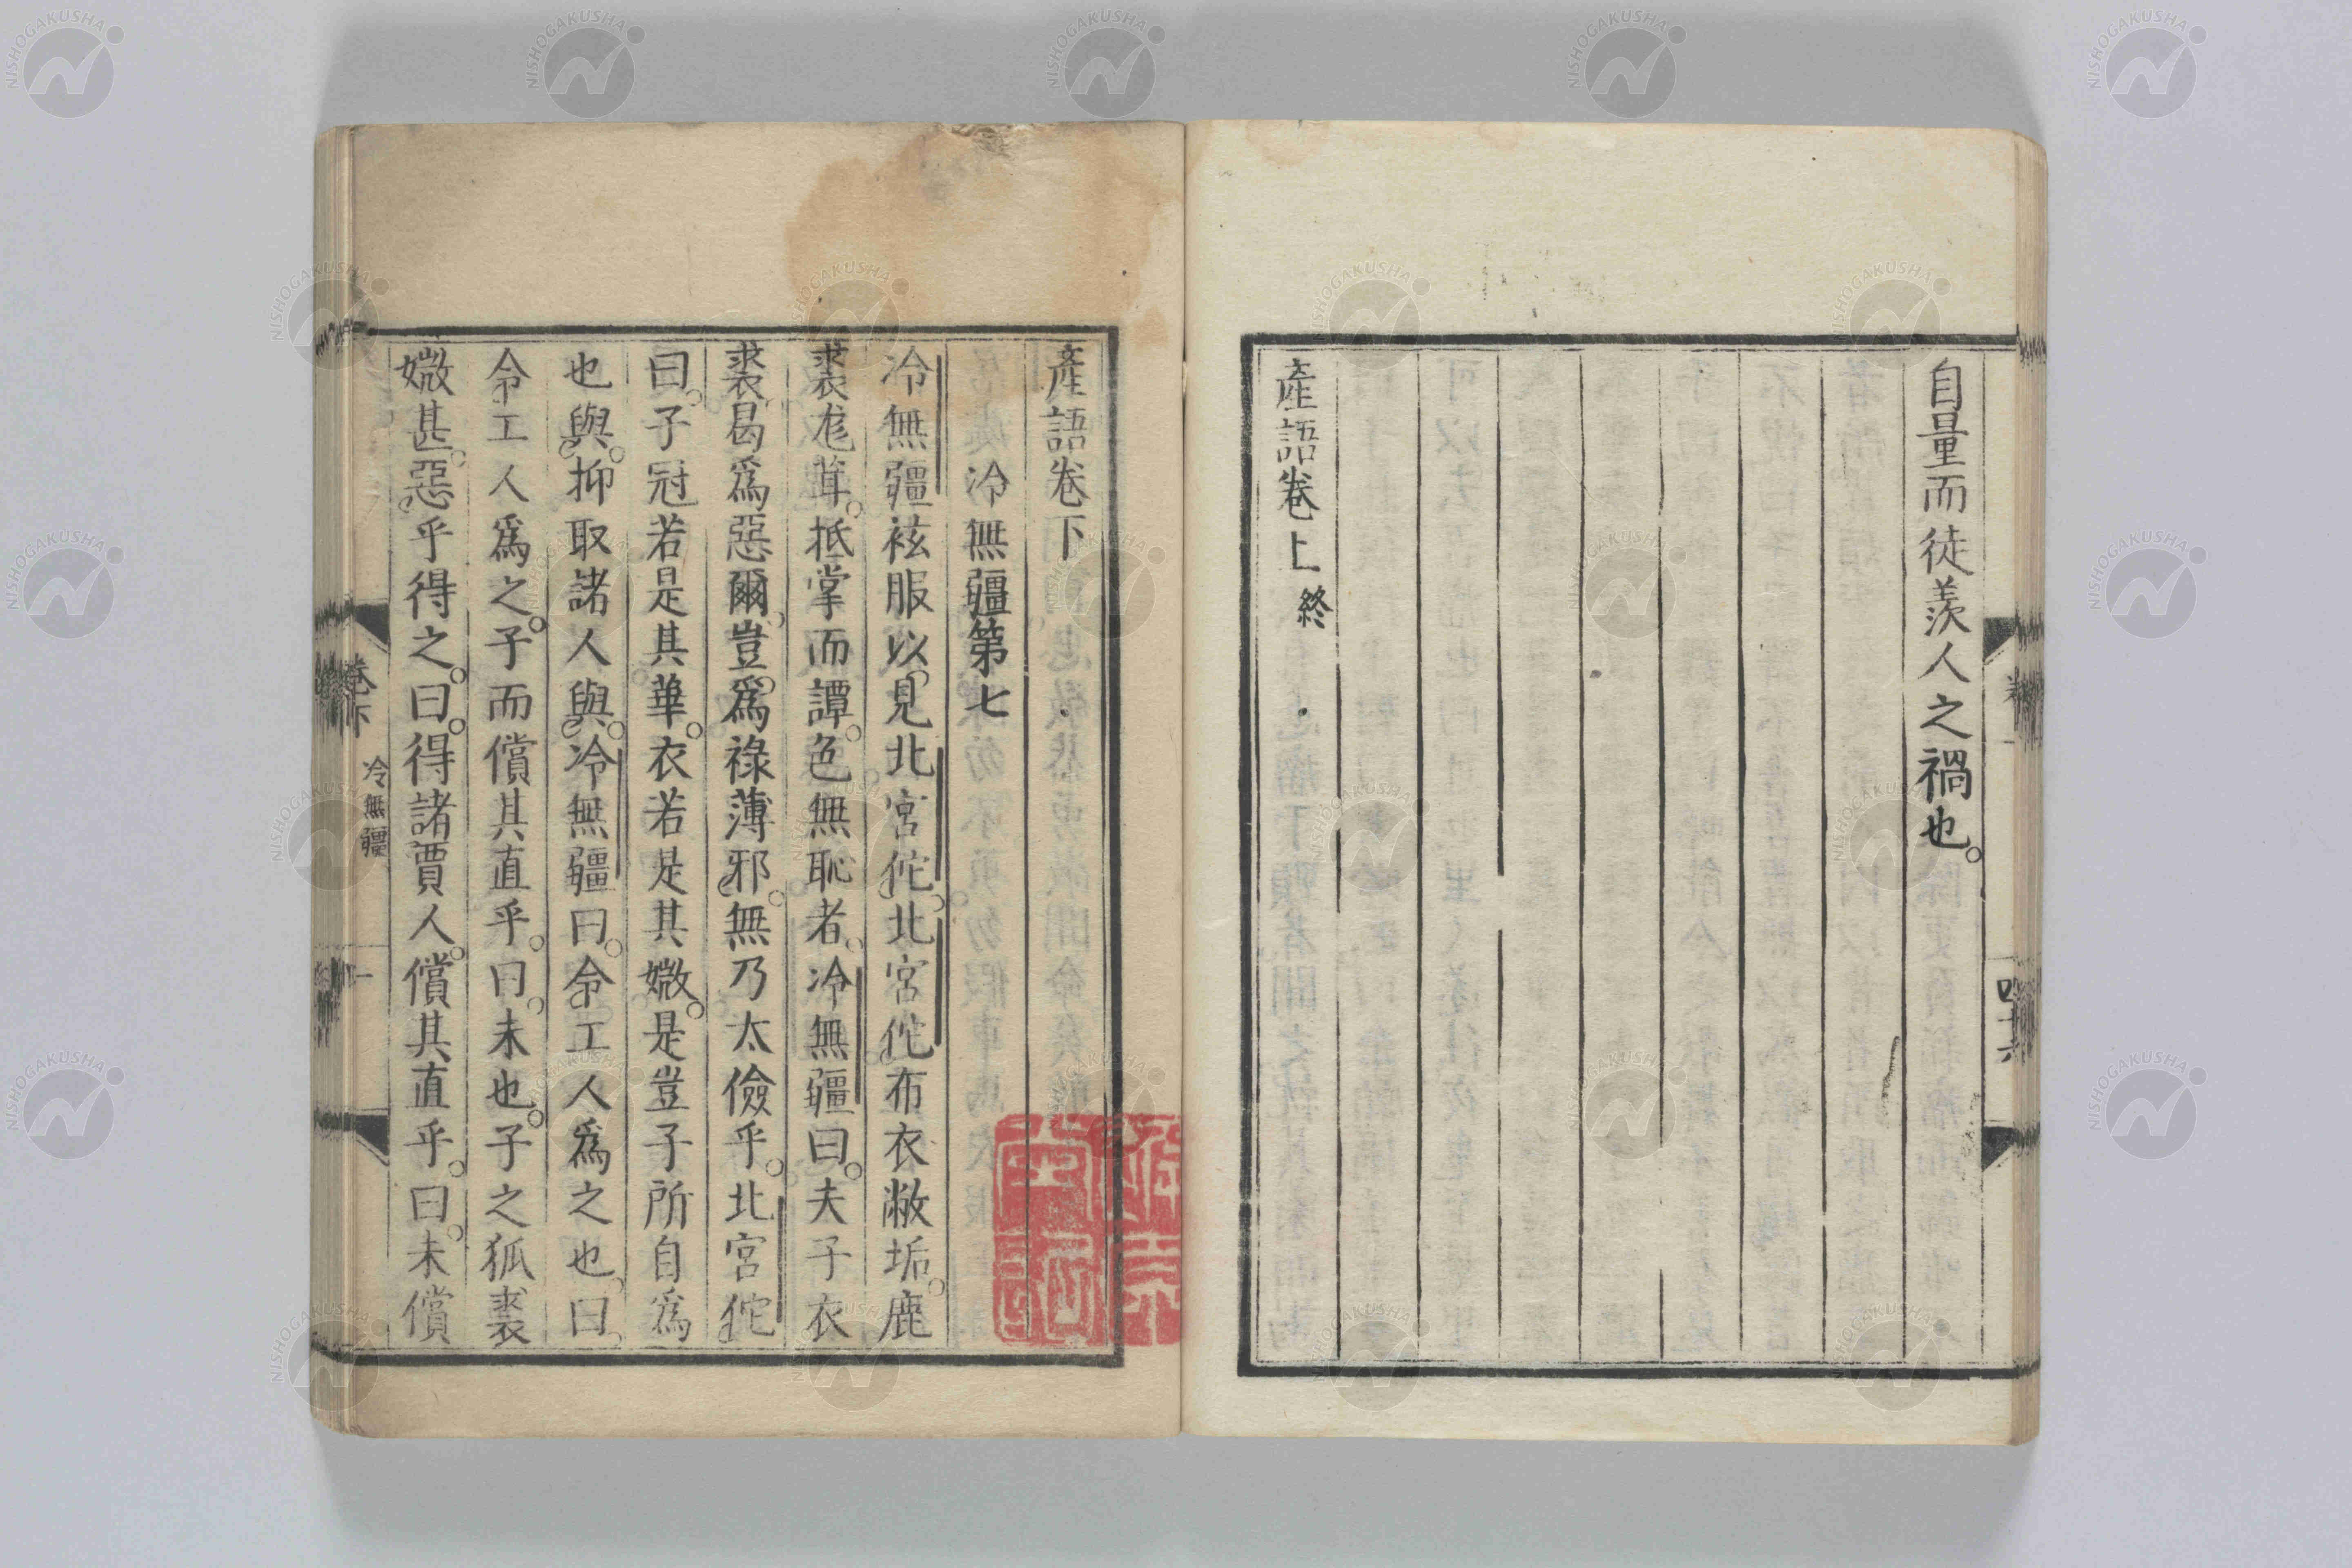 自量而徒羨人之禍也。
產語卷上終
四十六
產語卷下
冷無疆第七
冷無疆袨服以見北宮佗。北宮佗布衣敝垢。鹿
裘尨茸。抵掌而譚。色無恥者。冷無疆曰。夫子衣
裘曷爲惡爾。豈爲祿薄邪。無乃太儉乎。北宮佗
曰。子冠若是其華。衣若是其媺。是豈子所自爲
也與。抑取諸人與。冷無疆曰。令工人爲之也。曰。
令工人爲之。子而償其直乎。曰。未也。子之狐裘
媺甚。惡乎得之。曰。得諸賈人。償其直乎。曰。未償
卷下
冷無疆
一